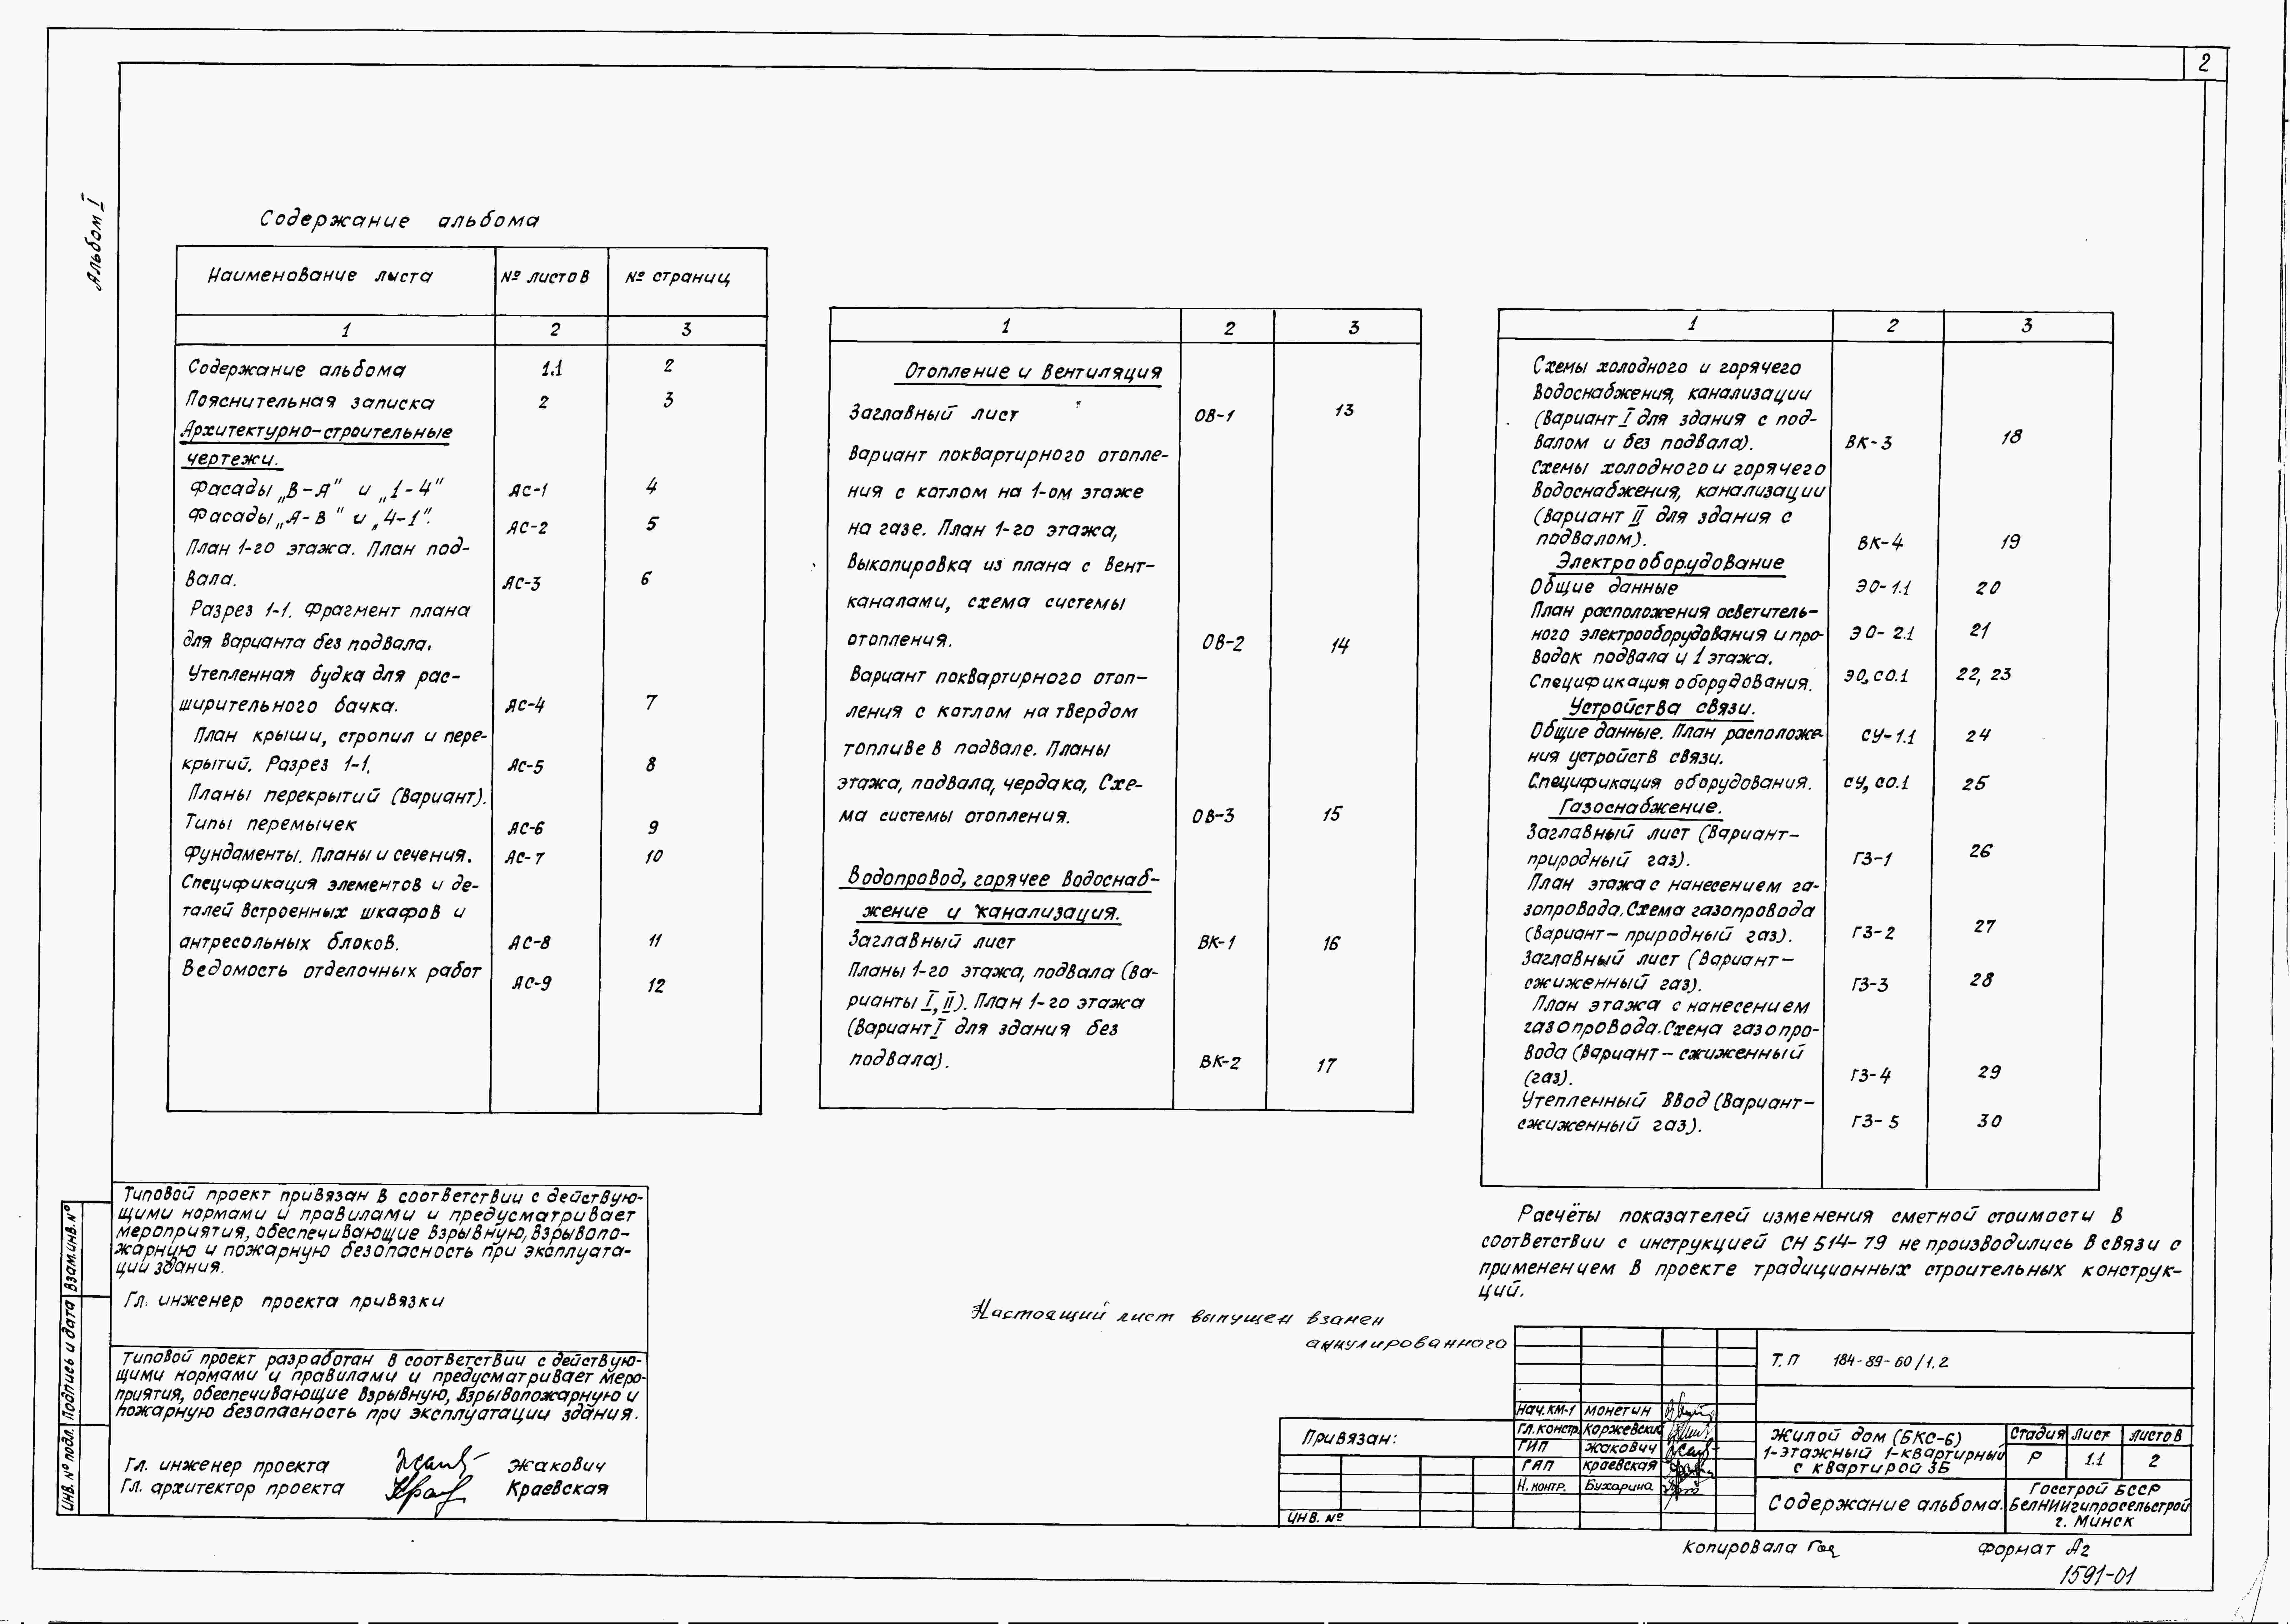 2
Альбом I
Содержание альбома
Наименование листа № листов № страниц
1 2 3
Содержание альбома 1.1 2
Пояснительная записка 2 3
Архитектурно-строительные
чертежи.
Фасады „В-А" и „1-4" АС-1 4
Фасады „А-В" и „4-1". АС-2 5
План 1-го этажа. План под-
вала. АС-3 6
Разрез 1-1. Фрагмент плана
для варианта без подвала.
Утепленная будка для рас-
ширительного бачка. АС-4 7
План крыши, стропил и пере-
крытий. Разрез 1-1. АС-5 8
Планы перекрытий (вариант).
Типы перемычек АС-6 9
Фундаменты. Планы и сечения. АС-7 10
Спецификация элементов и де-
талей встроенных шкафов и
антресольных блоков. АС-8 11
Ведомость отделочных работ АС-9 12
1 2 3
Отопление и вентиляция
Заглавный лист ОВ-1 13
Вариант поквартирного отопле-
ния с котлом на 1-ом этаже
на газе. План 1-го этажа,
выкопировка из плана с вент-
каналами, схема системы
отопления. ОВ-2 14
Вариант поквартирного отоп-
ления с котлом на твердом
топливе в подвале. Планы
этажа, подвала, чердака, Схе-
ма системы отопления. ОВ-3 15
Водопровод, горячее водоснаб-
жение и канализация.
Заглавный лист ВК-1 16
Планы 1-го этажа, подвала (ва-
рианты I, II). План 1-го этажа
(вариант I для здания без
подвала). ВК-2 17
1 2 3
Схемы холодного и горячего
водоснабжения, канализации
(вариант I для здания с под-
валом и без подвала). ВК-3 18
Схемы холодного и горячего
водоснабжения, канализации
(вариант II для здания с
подвалом). ВК-4 19
Электрооборудование
Общие данные ЭО-1.1 20
План расположения осветитель-
ного электрооборудования и про- ЭО-2.1 21
водок подвала и 1 этажа.
Спецификация оборудования. ЭО,СО.1 22, 23
Устройства связи.
Общие данные. План расположе- СУ-1.1 24
ния устройств связи.
Спецификация оборудования. СУ,СО.1 25
Газоснабжение.
Заглавный лист (вариант-
природный газ). ГЗ-1 26
План этажа с нанесением га-
зопровода. Схема газопровода
(вариант-природный газ). ГЗ-2 27
Заглавный лист (вариант-
сжиженный газ). ГЗ-3 28
План этажа с нанесением
газопровода. Схема газопро-
вода (вариант-сжиженный
(газ). ГЗ-4 29
Утепленный ввод (вариант-
сжиженный газ). ГЗ-5 30
Типовой проект привязан в соответствии с действую-
щими нормами и правилами и предусматривает
мероприятия, обеспечивающие взрывную, взрывопо-
жарную и пожарную безопасность при эксплуата-
ции здания.
Гл. инженер проекта привязки
Типовой проект разработан в соответствии с действую-
щими нормами и правилами и предусматривает меро-
приятия, обеспечивающие взрывную, взрывопожарную и
пожарную безопасность при эксплуатации здания.
Гл. инженер проекта Жакович
Гл. архитектор проекта Краевская
Инв. № подл. Подпись и дата Взам.инв.№
Расчёты показателей изменения сметной стоимости в
соответствии с инструкцией СН 514-79 не производились в связи с
применением в проекте традиционных строительных конструк-
ций.
Настоящий лист выпущен взамен
аннулированного
Т.П 184-89-60/1.2
Нач.КМ-1 Монетин
Гл.констр. Коржевский
ГИП Жакович
ГАП Краевская
Н.контр. Бухарина
Привязан:
Инв. №
Жилой дом (БКС-6)
1-этажный 1-квартирный
с квартирой 3Б
Стадия Лист Листов
Р 1.1 2
Содержание альбома.
Госстрой БССР
БелНИИгипросельстрой
г. Минск
Копировала
Формат А2
1591-01